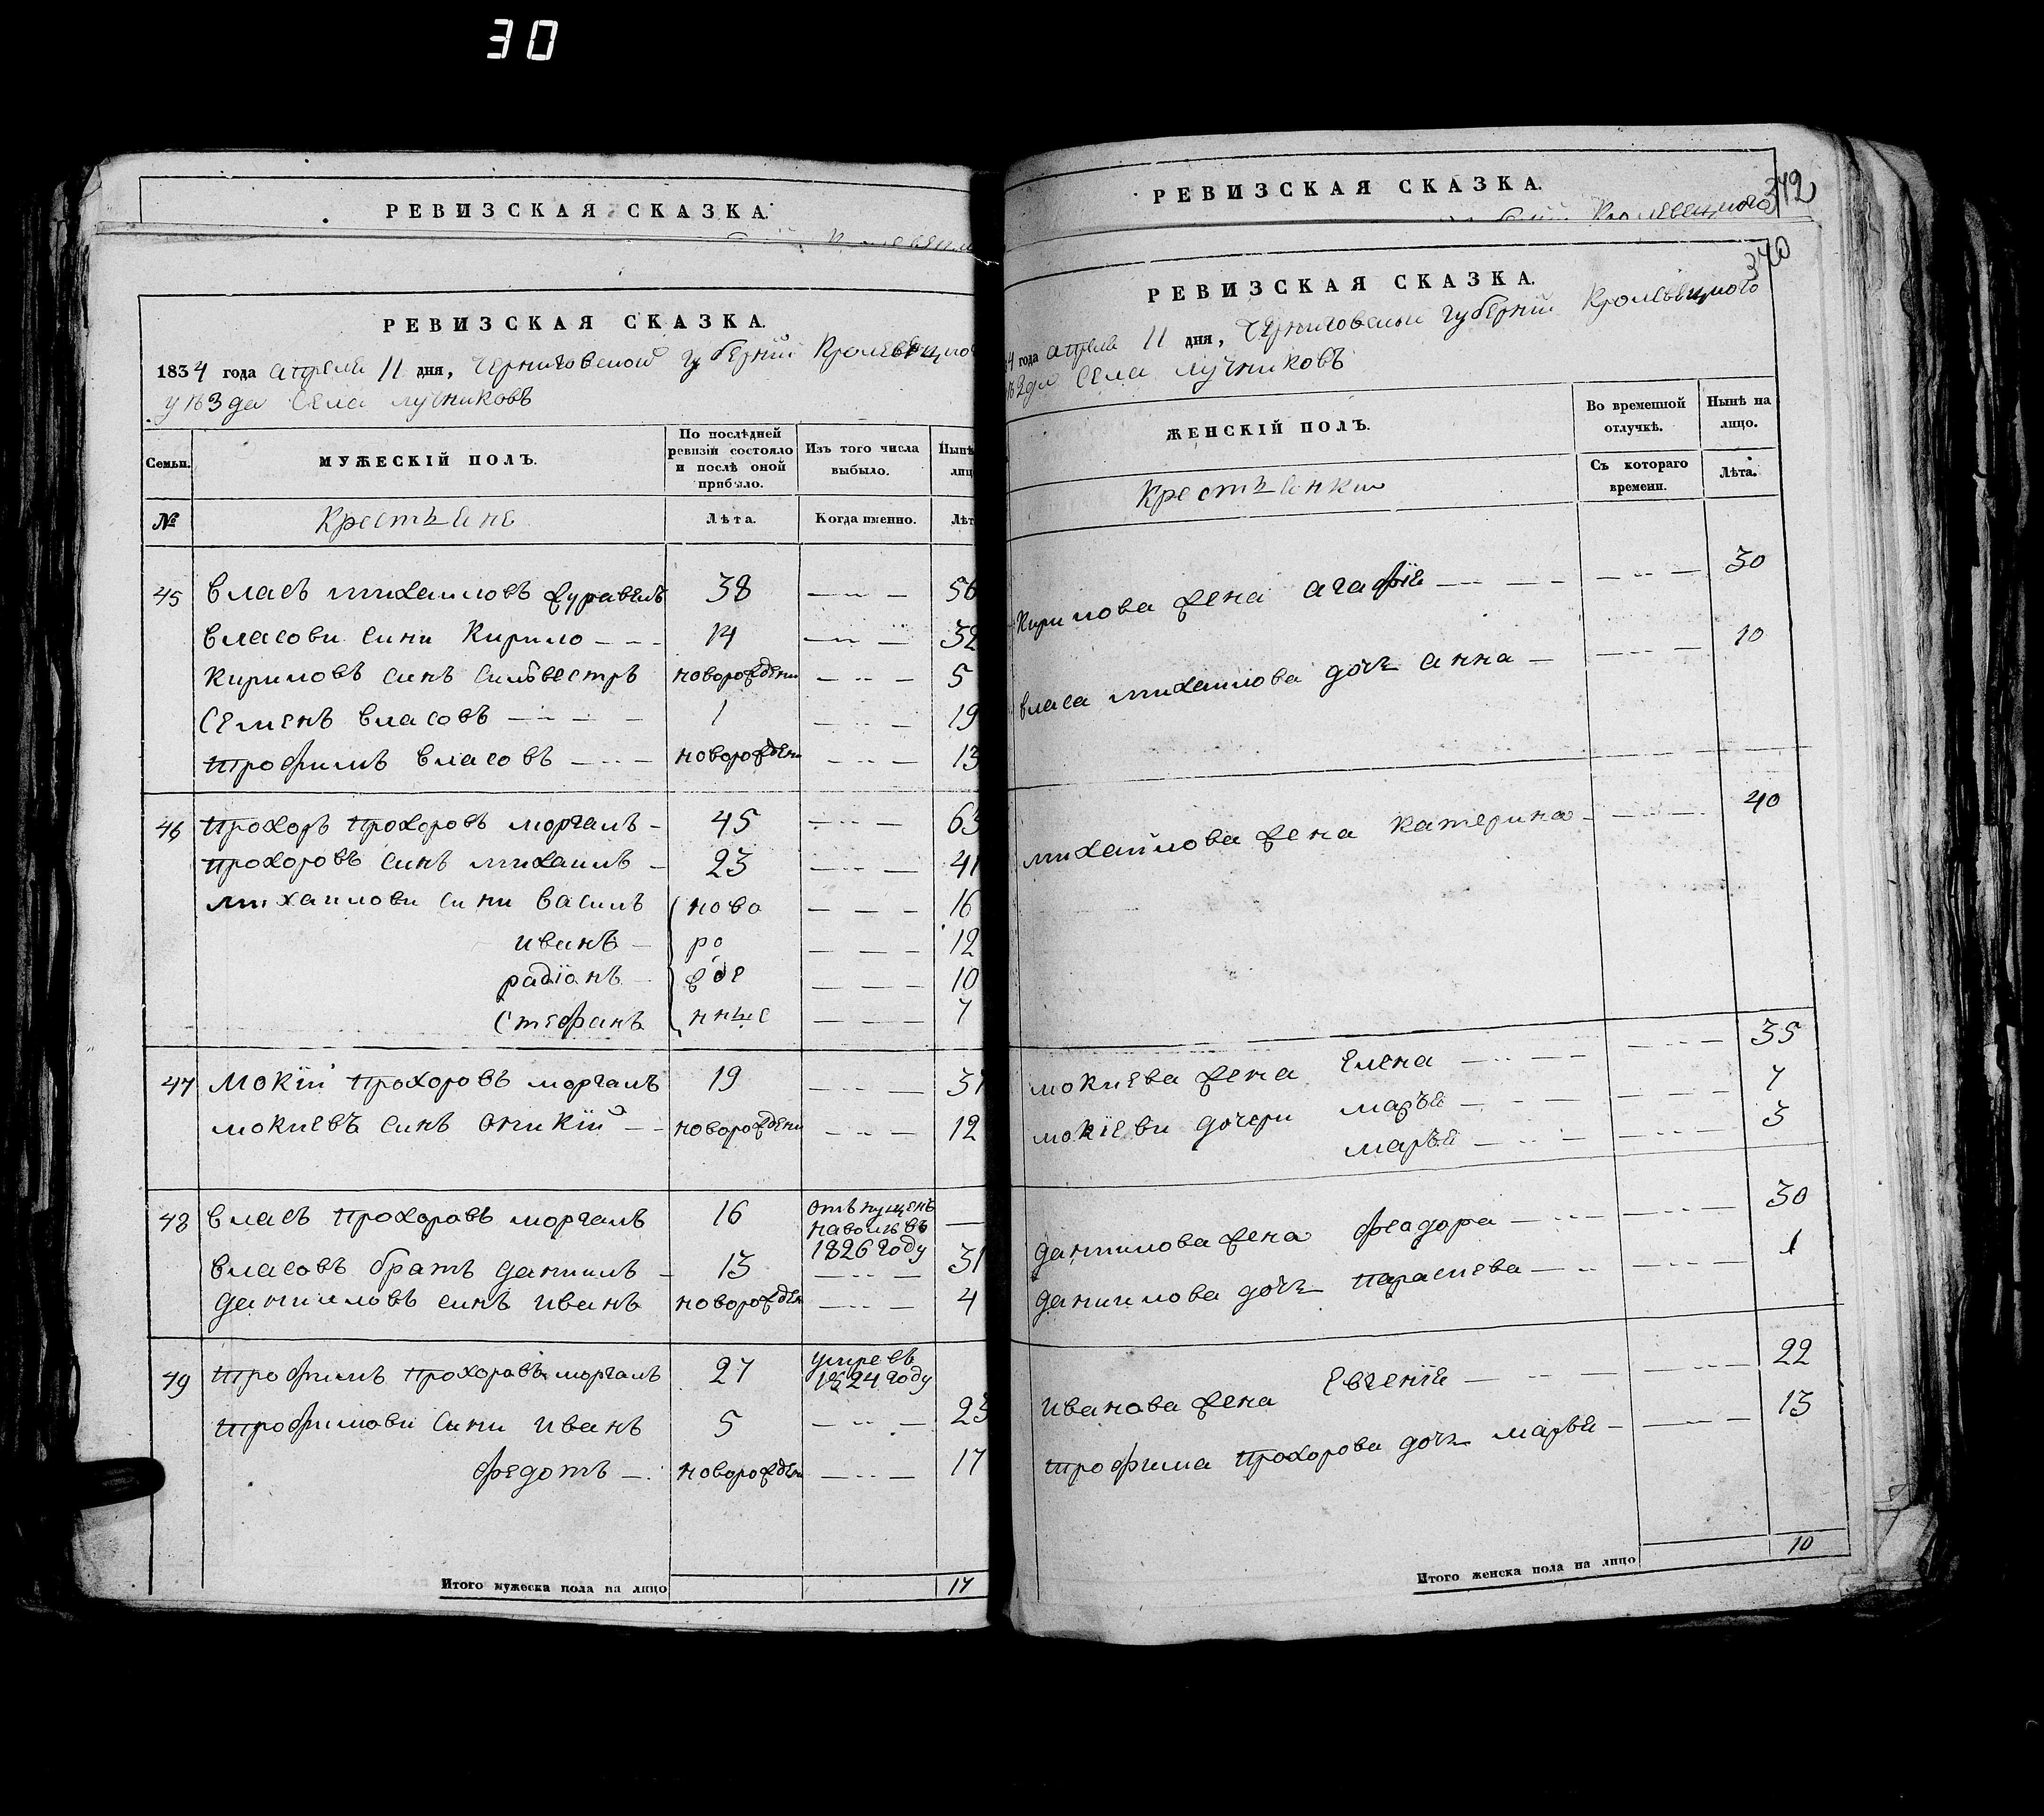 30
РЕВИЗСКАЯ СКАЗКА.
РЕВИЗСКАЯ СКАЗКА.
1834 года апреля 11 дня, Черниговской губернїи Кролевецко
уѣзда села лучниковъ
Семьи.
МУЖЕСКІЙ ПОЛЪ.
По послѣдней ревизіи состояло и послѣ оной прибыло.
Изъ того числа выбыло.
Нынѣ лиц
№
Крестьяне
Лѣта.
Когда именно.
Лѣт
45 власъ михаиловъ журавель 38 56
власови сини Кирило 14 32
Кириловъ синъ Сильвестръ новорожденн 5
Семенъ власовъ 1 19
трофимъ власовъ новорожден 13
46 прохоръ прохоровъ моргаль 45 63
прохоровъ синъ михаилъ 23 41
михаилови сини василь ново 16
иванъ ро 12
радїонъ жде 10
Стефанъ нные 7
47 Мокїй прохоровъ моргаль 19 37
мокиевъ синъ оникїй новорожденн 12
48 власъ прохоровъ моргаль 16 отъпущенъ наволю въ 1826 году
власовъ братъ даниилъ 13 31
данииловъ синъ иванъ новорожден 4
49 трофимъ прохоровъ моргаль 27 умре въ 1824 году
трофимови сини иванъ 5 23
федотъ новорожден 17
Итого мужеска пола на лицо 17
РЕВИЗСКАЯ СКАЗКА.
342
Кролевецкого
340
РЕВИЗСКАЯ СКАЗКА.
4 года апреля 11 дня, Черниговской губернїи Кролевецкого
ѣзда села лучниковъ
ЖЕНСКІЙ ПОЛЪ.
Во временной отлучкѣ.
Нынѣ на лицо.
Крестьянки
Съ котораго времени.
Лѣта.
Кирилова жена агафїя 30
власа михаилова дочь анна 10
михайлова жена катерина 40
мокиева жена Елена 35
мокїеви дочери марья 7
марья 3
даниилова жена феадора 30
даниилова дочь параскева 1
иванова жена Евгенїя 22
трофима прохорова дочь марья 13
Итого женска пола на лицо 10